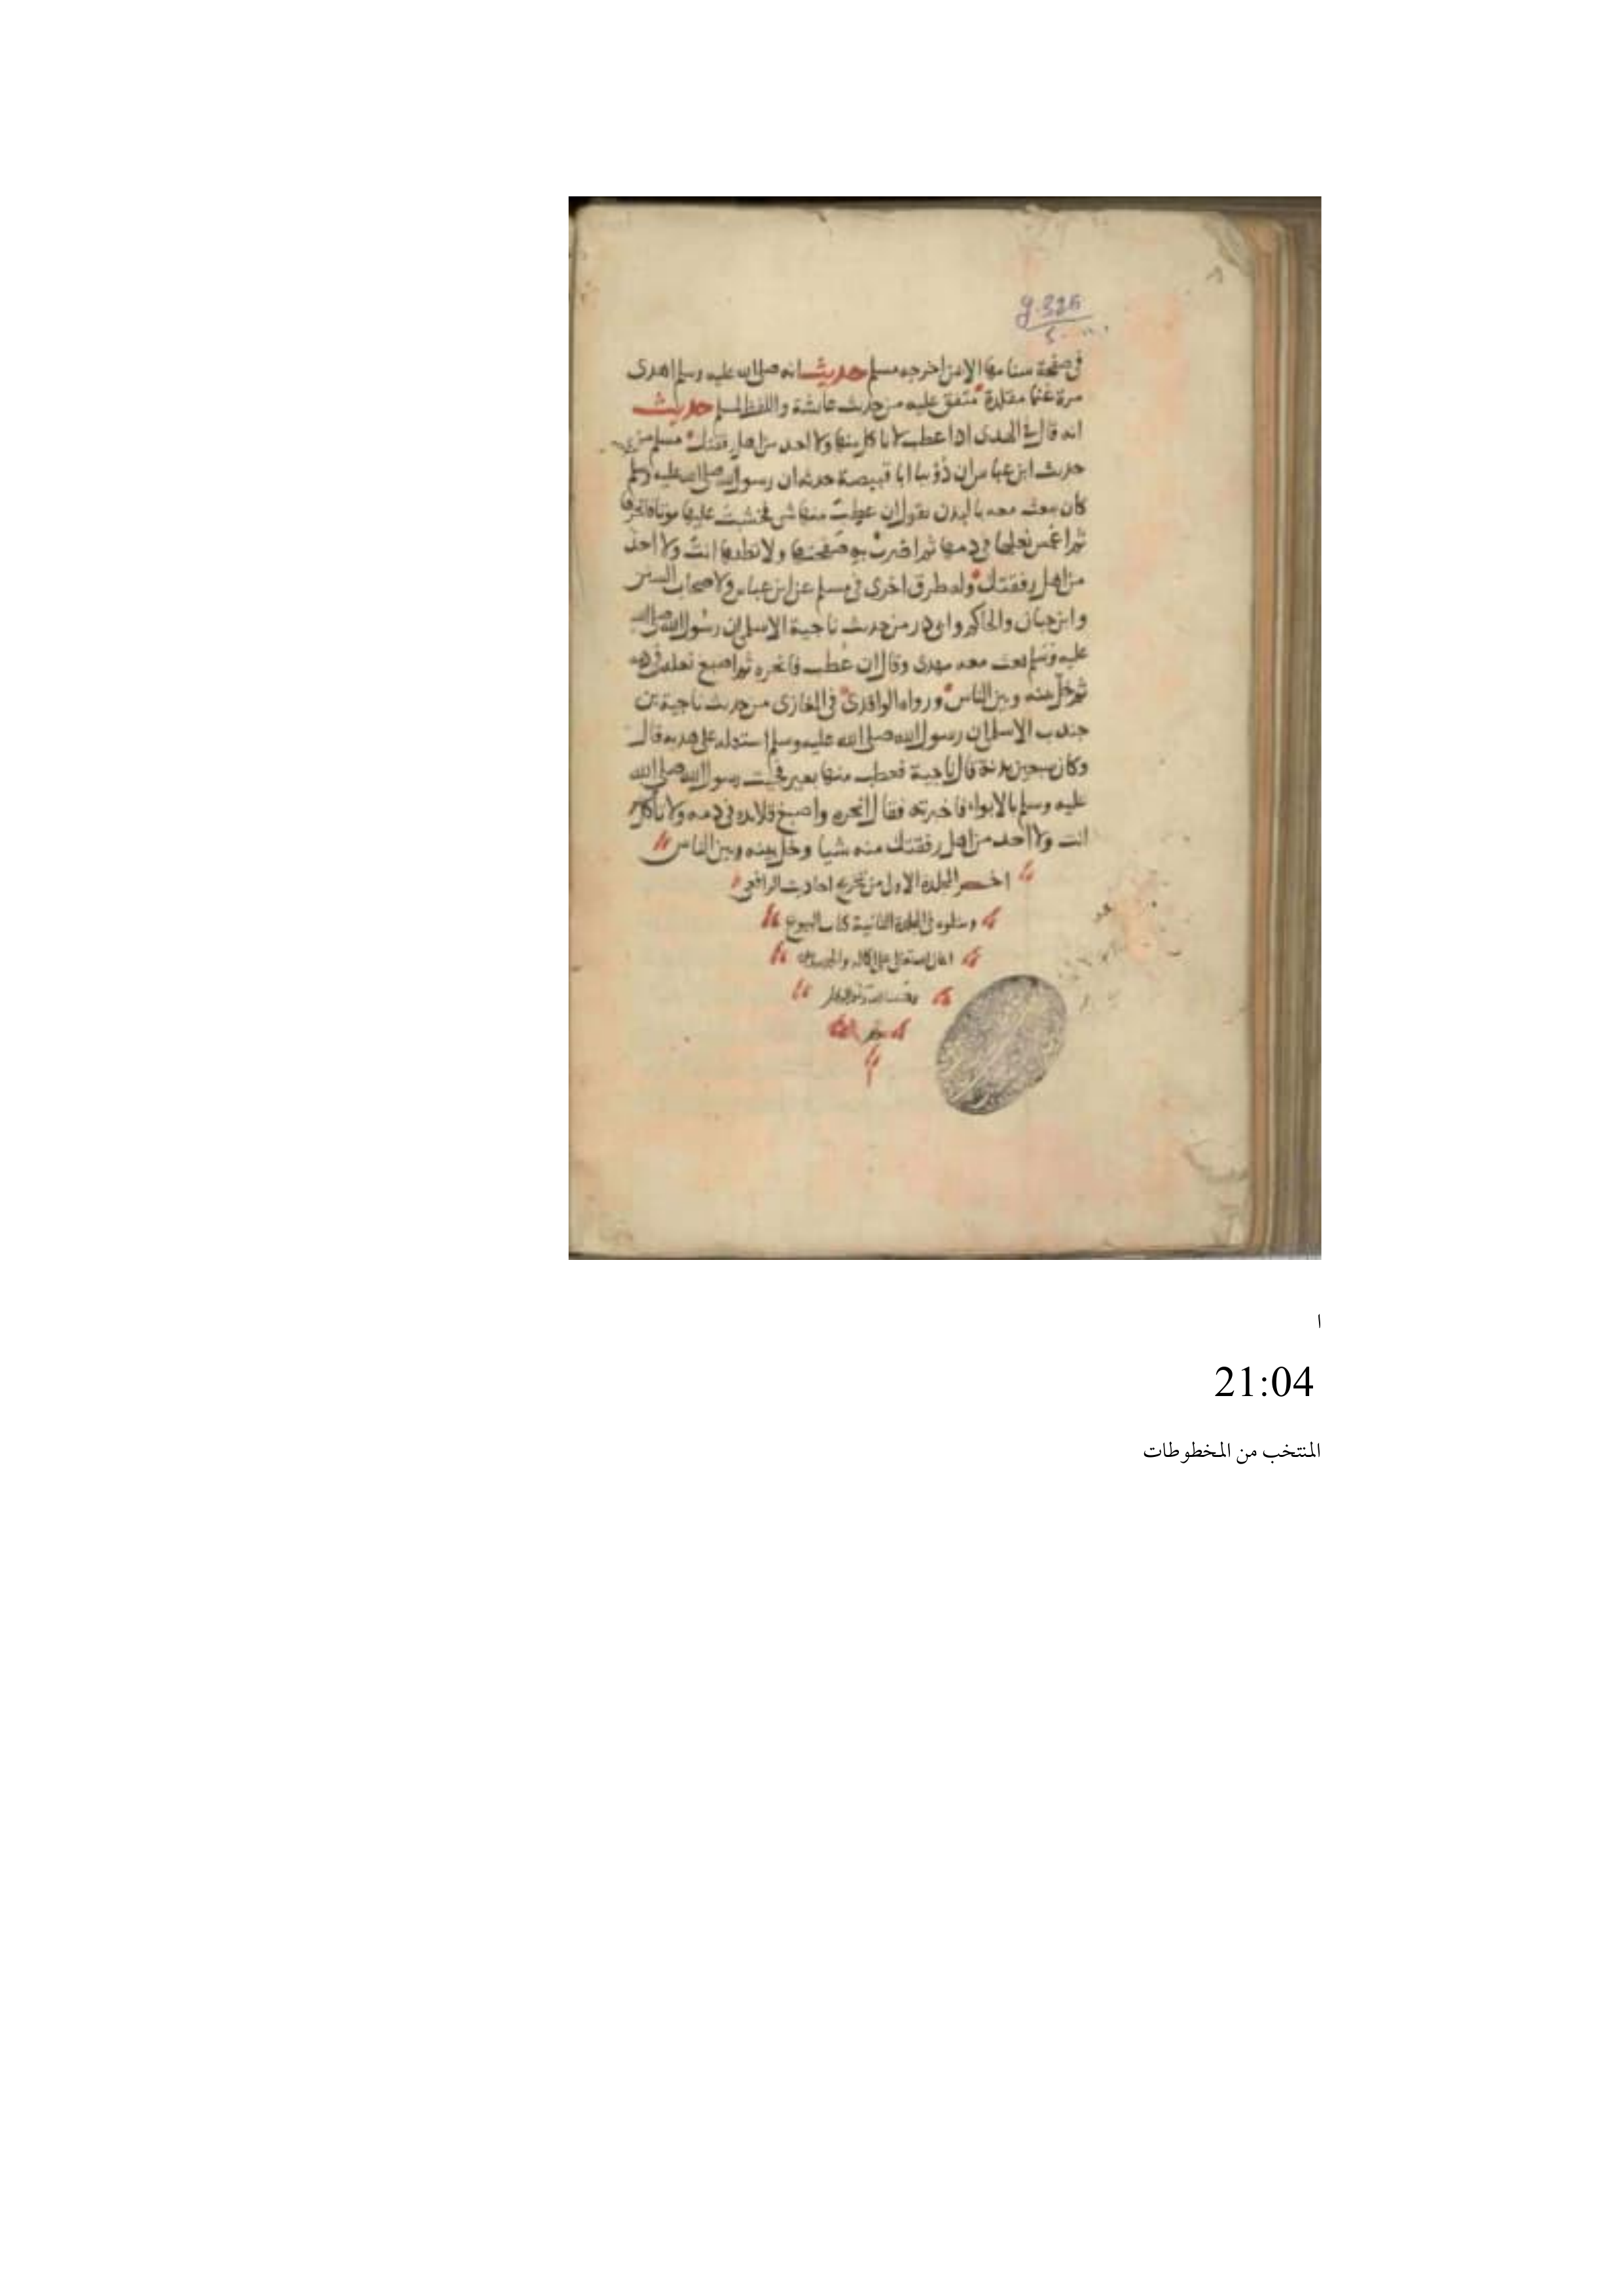 في صفحة سنامها الايمن اخرجه مسلم حديث انه صلى الله عليه وسلم اهدى
مرة غنما مقلدة متفق عليه من حديث عائشة واللفظ لمسلم حديث
انه قال في الهدى اذا عطب لا تاكل منها ولا احد من اهل رفقتك مسلم من
حديث ابن عباس ان ذؤيبا ابا قبيصة حدثه ان رسول الله صلى الله عليه وسلم
كان يبعث معه بالبدن يقول ان عطب منها شي فخشيت عليها موتا فانحرها
ثم اغمس نعلها في دمها ثم اضرب به صفحتها ولا تطعمها انت ولا احد
من اهل رفقتك وله طرق اخرى في مسلم عن ابن عباس ولاصحاب السنن
وابن حبان والحاكم وابى ذر من حديث ناجية الاسلمى ان رسول الله صلى الله
عليه وسلم بعث معه بهدى وقال ان عطب فانحره ثم اصبغ نعله في دمه
ثم خل بينه وبين الناس ورواه الواقدى في المغازى من حديث ناجية بن
جندب الاسلمى ان رسول الله صلى الله عليه وسلم استعمله على هديه قال
وكان سبعين بدنة قال ناجية فعطب منها بعير فجيت رسول الله صلى الله
عليه وسلم بالابواء فاخبرته فقال انحره واصبغ قلايده في دمه ولا تاكل
انت ولا احد من اهل رفقتك منه شيا وخل بينه وبين الناس
اخر المجلدة الاولى من تخريج احاديث الرافعي
ويتلوه في المجلدة الثانية كتاب البيوع
اعان الله تعالى على اكماله والحمد لله
ا
21:04
المنتخب من المخطوطات